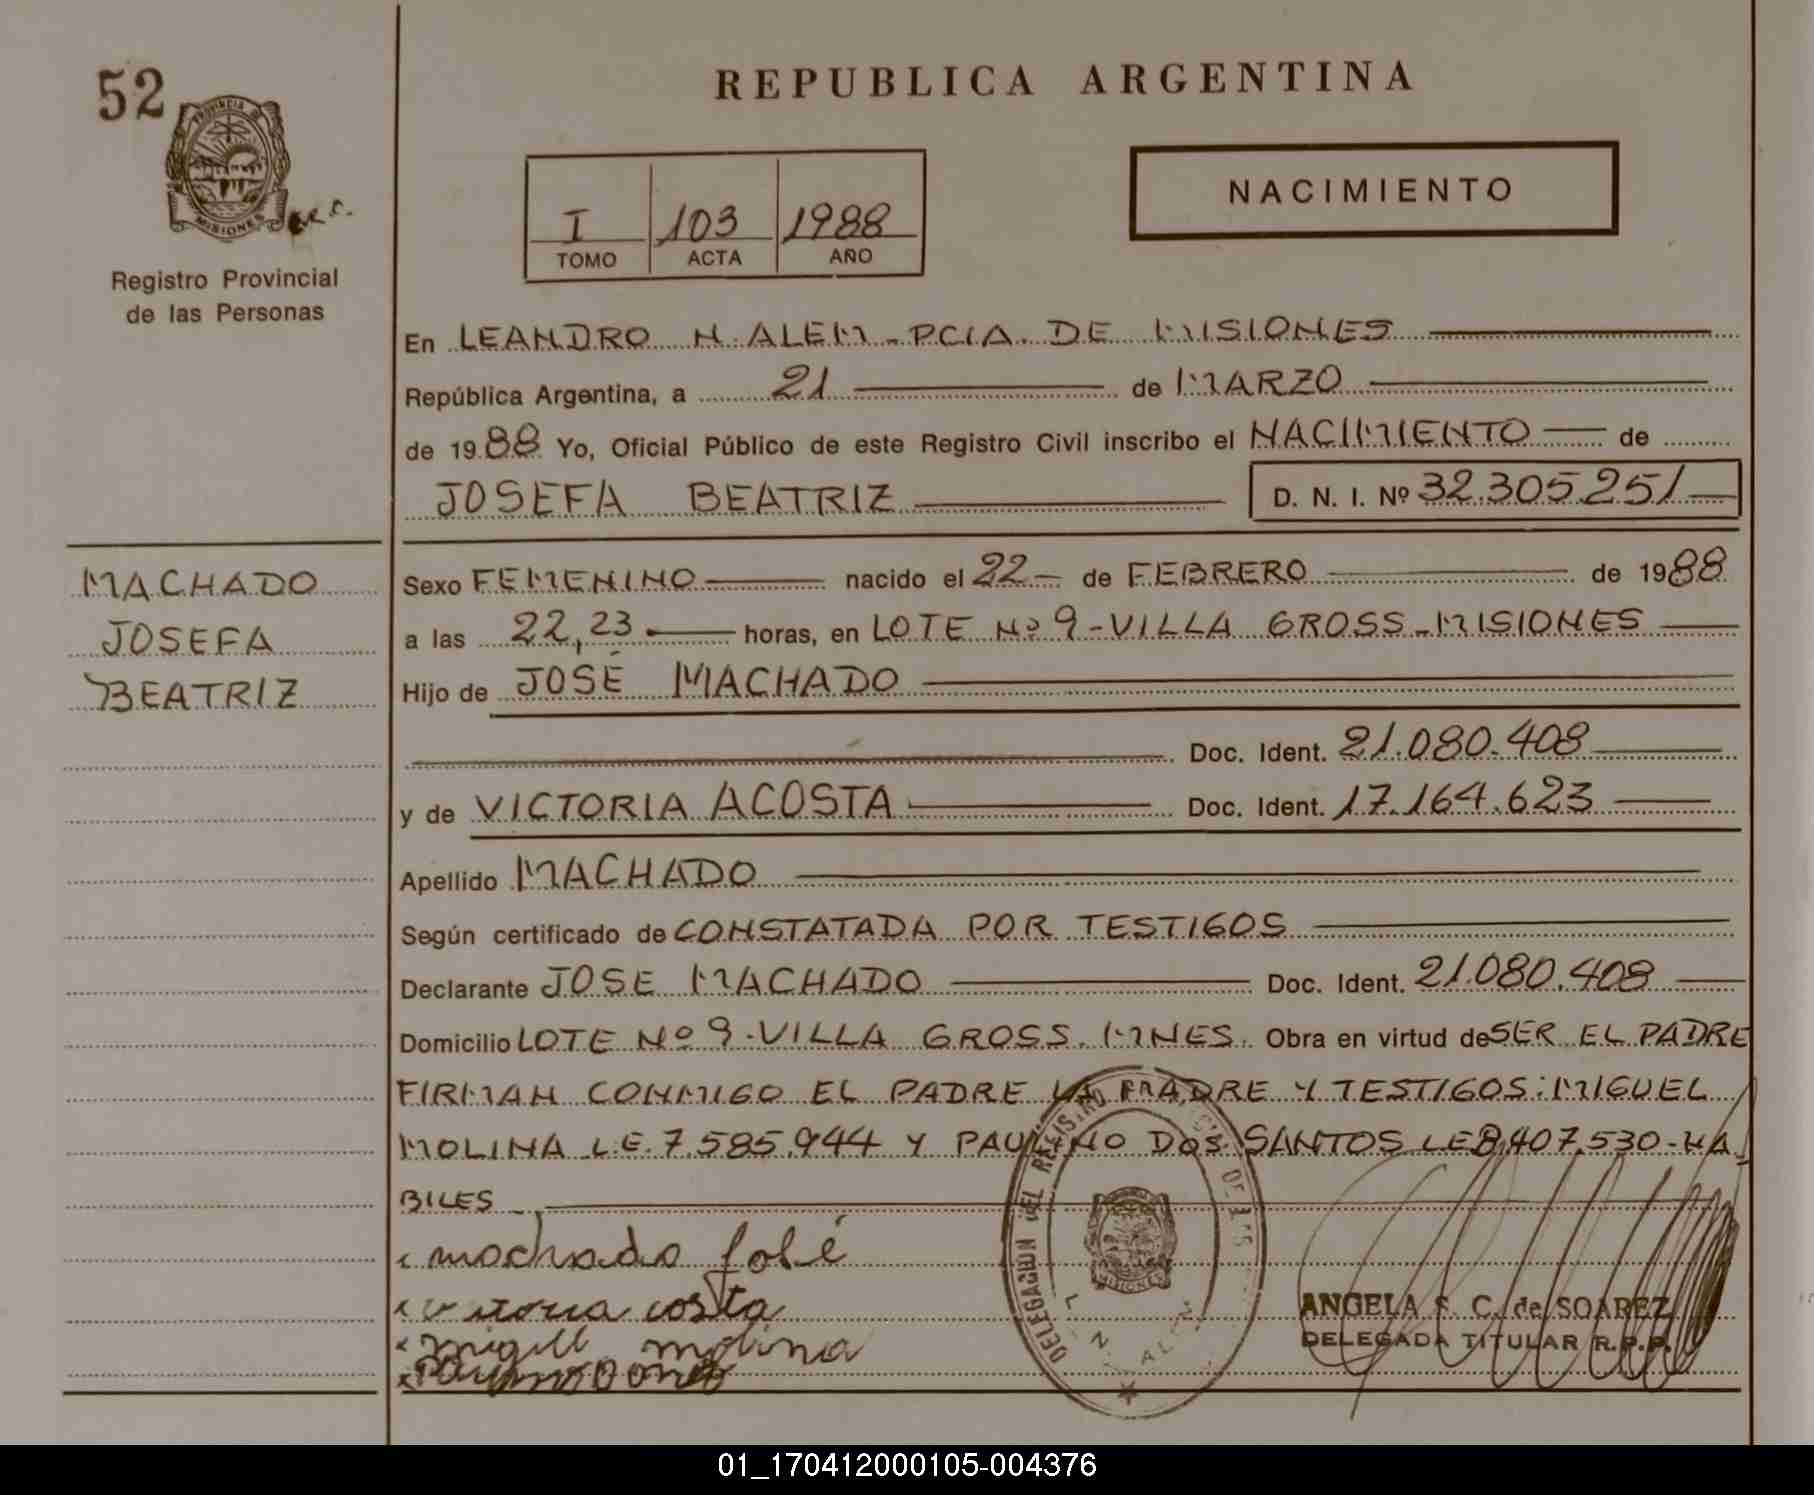 52
PROVINCIA DE
MISIONES
Registro Provincial
de las Personas
REPUBLICA ARGENTINA
I 103 1988
TOMO ACTA AÑO
NACIMIENTO
En LEANDRO N. ALEM - PCIA. DE MISIONES
República Argentina, a 21 de MARZO
de 1988 Yo, Oficial Público de este Registro Civil inscribo el NACIMIENTO de
JOSEFA BEATRIZ D. N. I. Nº 32.305.251
MACHADO
JOSEFA
BEATRIZ
Sexo FEMENINO nacido el 22 de FEBRERO de 1988
a las 22,23 horas, en LOTE Nº 9 - VILLA GROSS - MISIONES
Hijo de JOSÉ MACHADO
Doc. Ident. 21.080.408
y de VICTORIA ACOSTA Doc. Ident. 17.164.623
Apellido MACHADO
Según certificado de CONSTATADA POR TESTIGOS
Declarante JOSE MACHADO Doc. Ident. 21.080.408
Domicilio LOTE Nº 9 - VILLA GROSS. MNES. Obra en virtud de SER EL PADRE
FIRMAN CONMIGO EL PADRE LA MADRE Y TESTIGOS: MIGUEL
MOLINA L.E. 7.585.944 Y PAULINO DOS SANTOS LE 8.407.530 - HA
BILES
machado José
molina
DELEGACION DEL REGISTRO DE LAS
L. N. ALEM
MISIONES
ANGELA S. C. de SOAREZ
DELEGADA TITULAR R.P.P.
01_170412000105-004376